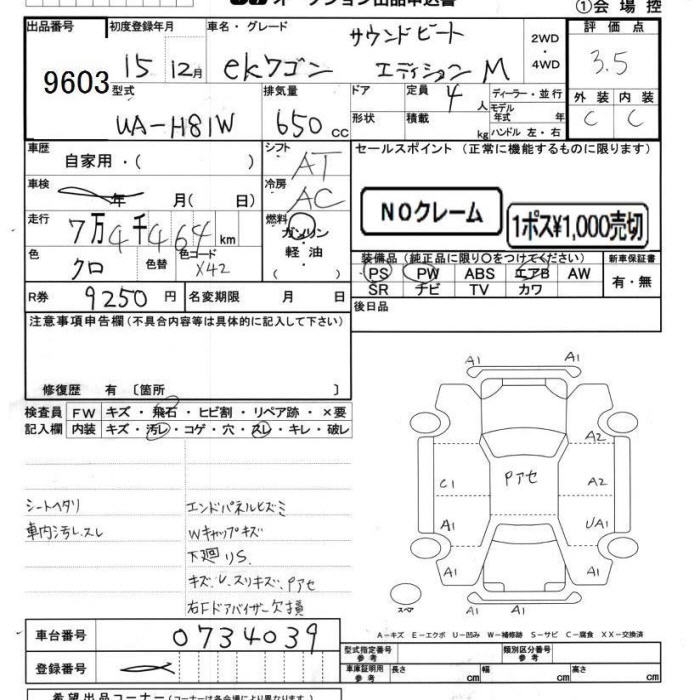 オークション出品申込書
①会場控
出品番号
9603
初度登録年月
15 12月
車名・グレード
ekワゴン サウンドビート エディションM
2WD
・
4WD
評価点
3.5
外装 内装
C C
型式
UA-H81W
排気量
650cc
ドア
定員 4人
形状
積載 kg
ディーラー・並行
モデル年式 年
ハンドル 左・右
車歴
自家用・( )
シフト
AT
車検
年 月( 日)
冷房
AC
走行
7万4千464km
燃料
ガソリン
・
軽油
( )
色
クロ
色替
色コード
X42
R券 9250円
名変期限 月 日
セールスポイント (正常に機能するものに限ります)
NOクレーム
1ポス¥1,000売切
装備品 (純正品に限り○をつけてください)
PS PW ABS エアB AW
SR ナビ TV カワ
新車保証書
有・無
後日品
注意事項申告欄(不具合内容等は具体的に記入して下さい)
修復歴 有 〔箇所 〕
検査員 FW キズ・飛石・ヒビ割・リペア跡・×要
記入欄 内装 キズ・汚レ・コゲ・穴・スレ・キレ・破レ
シートヘタリ
車内汚レ.スレ
エンドパネルヒズミ
Wキャップキズ
下廻りS.
キズ.U.スリキズ.Pアセ
右Fドアバイザー欠損
A1 A1
A2
Pアセ
C1 A2
A1 UA1
A1 A1
A1 A1
スペア
A-キズ E-エクボ U-凹み W-補修跡 S-サビ C-腐食 XX-交換済
車台番号 0734039
登録番号
型式指定番号
参考
類別区分番号
参考
車庫証明用
参考
長さ cm 幅 cm 高さ cm
希望出品コーナー(コーナーは各会場により異なります。)